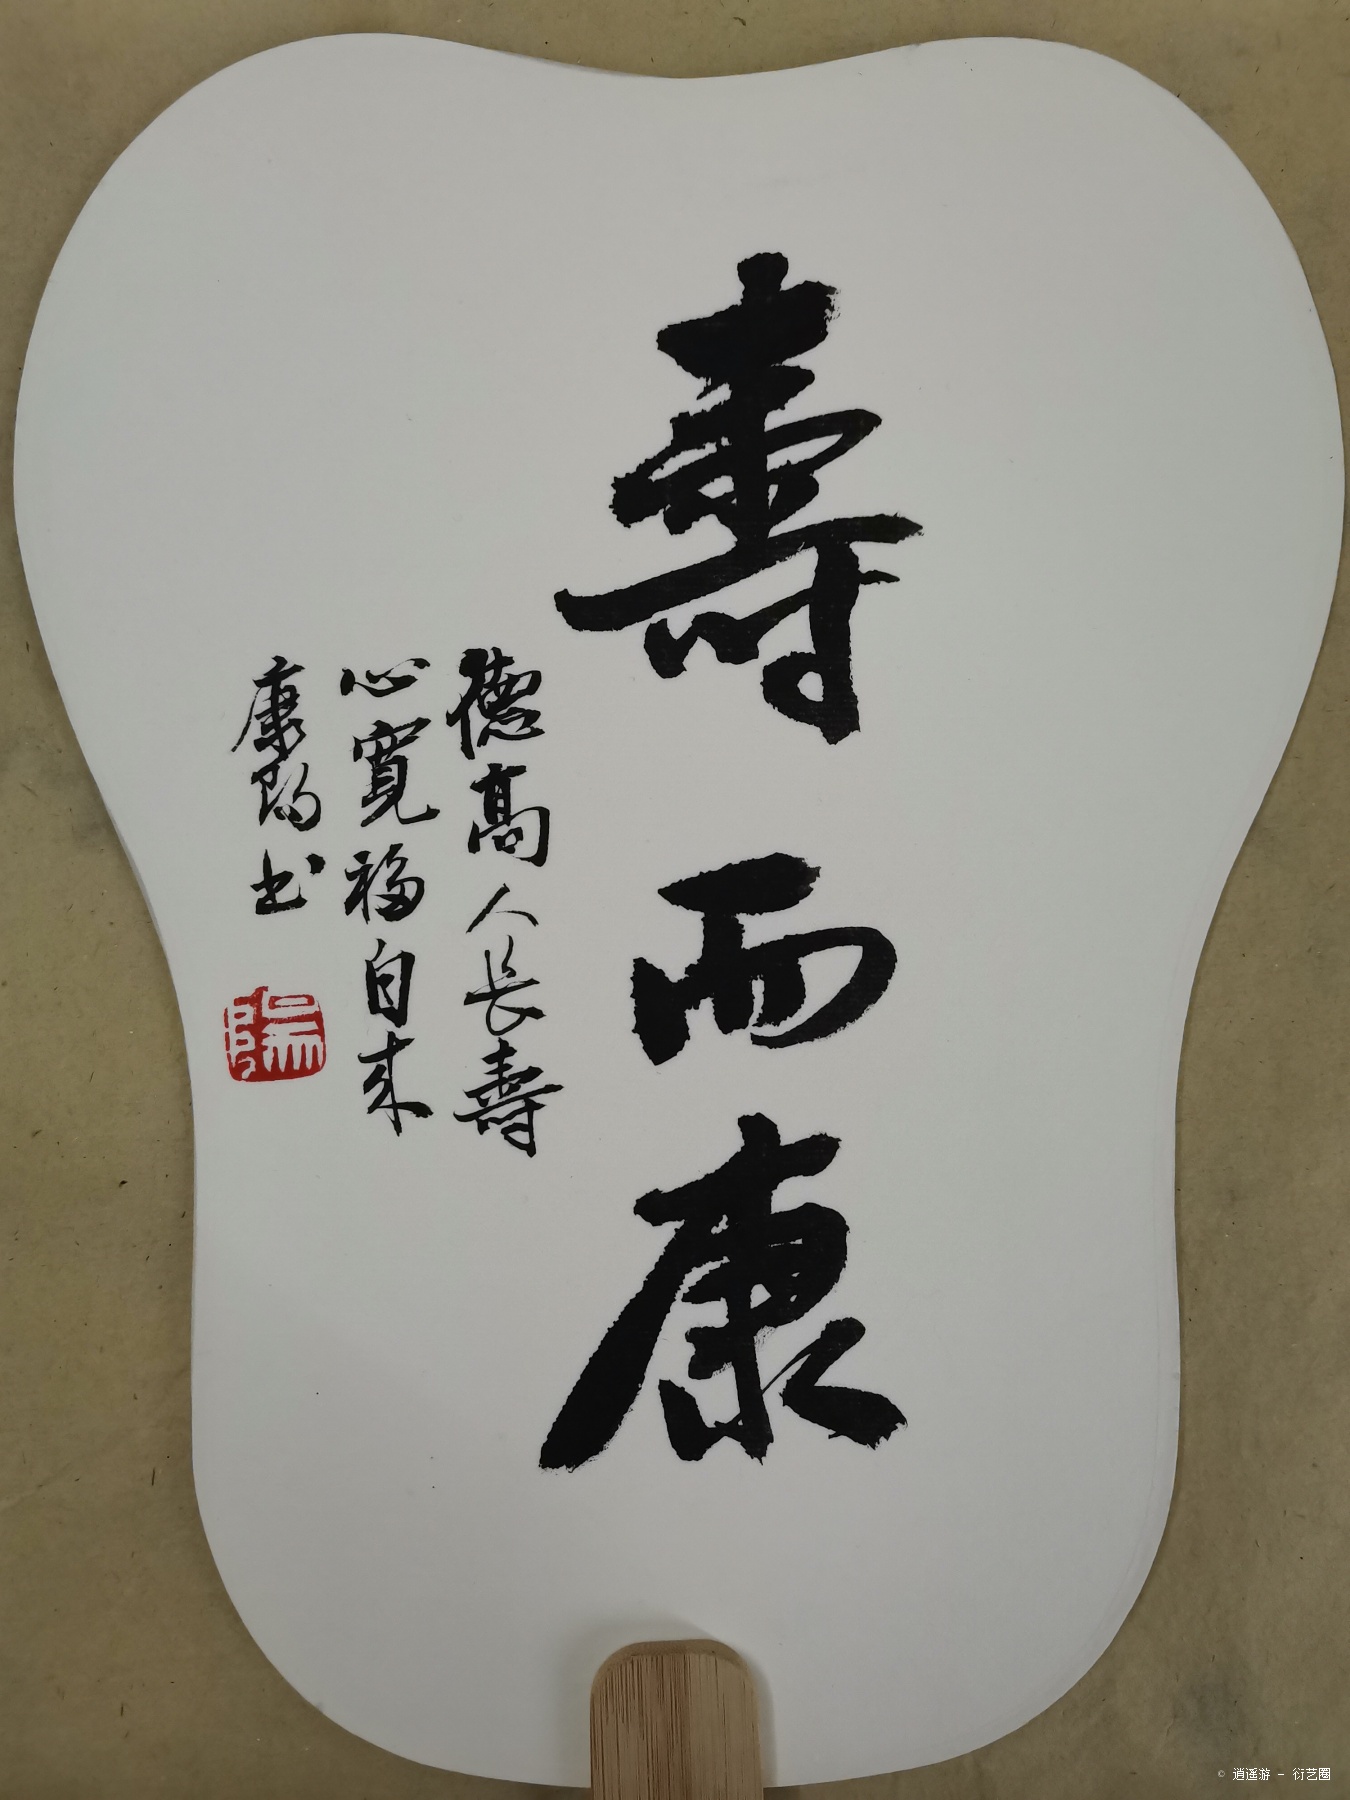 壽而康
德高人長壽
心寬福自来
康陽书
© 逍遥游 - 衍艺圈